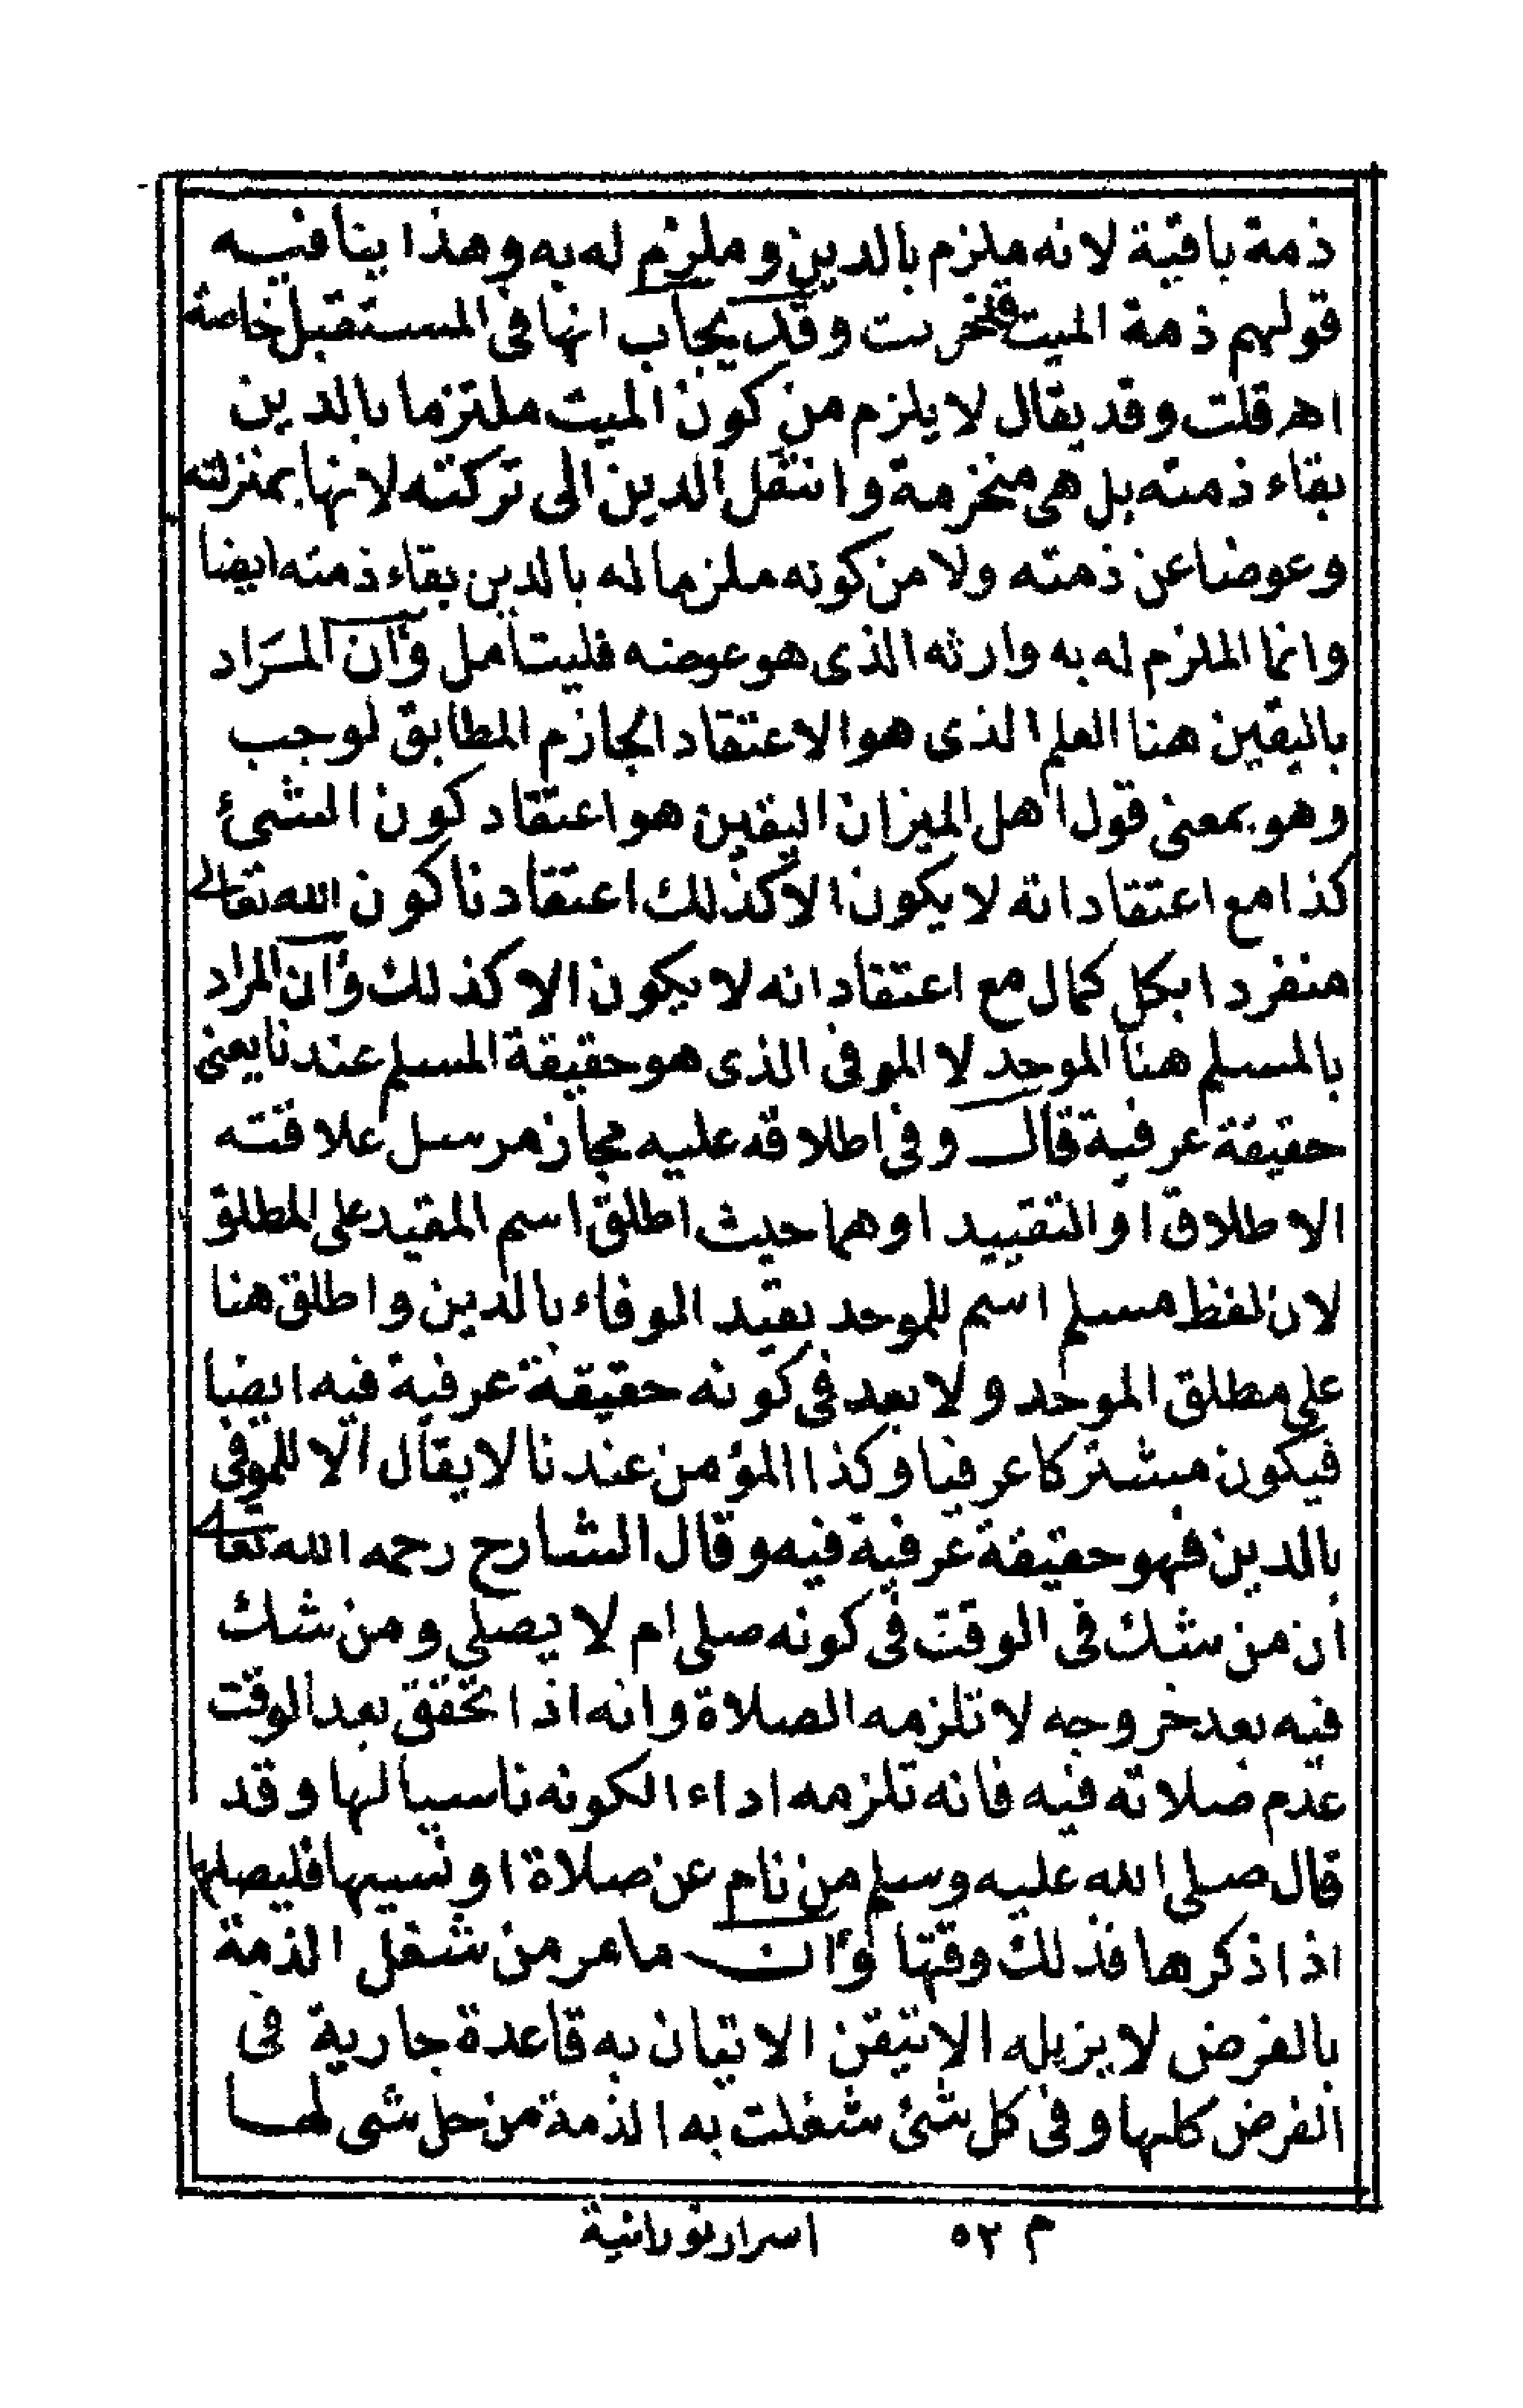 ذمة باقية لانه ملزم بالدين وملزم له به وهذا ينافيه
قولهم ذمة الميت قد خربت وقد يجاب انها فى المستقبل خاصة
اهـ قلت وقد يقال لا يلزم من كون الميت ملتزما بالدين
بقاء ذمته بل هى منخرمة وانتقل الدين الى تركته لانها بمنزلته
وعوضا عن ذمته ولا من كونه ملزما له بالدين بقاء ذمته ايضا
وانما الملزم له به وارثه الذى هو عوضه فليتأمل وأن المراد
باليقين هنا العلم الذى هو الاعتقاد الجازم المطابق لوجب
وهو بمعنى قول اهل الميزان اليقين هو اعتقاد كون الشئ
كذا مع اعتقاد انه لا يكون الا كذلك اعتقادنا كون الله تعالى
منفردا بكل كمال مع اعتقاد انه لا يكون الا كذلك وأن المراد
بالمسلم هنا الموحد لا الموفى الذى هو حقيقة المسلم عندنا يعنى
حقيقة عرفية قال وفى اطلاقه عليه مجاز مرسل علاقته
الاطلاق او التقييد او هما حيث اطلق اسم المقيد على المطلق
لان لفظ مسلم اسم للموحد بقيد الوفاء بالدين واطلق هنا
على مطلق الموحد ولا بعد فى كونه حقيقة عرفية فيه ايضا
فيكون مشتركا عرفيا وكذا المؤمن عندنا لا يقال الا للموفى
بالدين فهو حقيقة عرفية فيه وقال الشارح رحمه الله تعالى
ان من شك فى الوقت فى كونه صلى ام لا يصلى ومن شك
فيه بعد خروجه لا تلزمه الصلاة وانه اذا تحقق بعد الوقت
عدم صلاته فيه فانه تلزمه اداء الكونه ناسيا لها وقد
قال صلى الله عليه وسلم من نام عن صلاة او نسيها فليصلها
اذا ذكرها فذلك وقتها وأن ما مر من شغل الذمة
بالفرض لا يزيله الا تيقن الاتيان به قاعدة جارية فى
الفرض كلها وفى كل شئ شغلت به الذمة من حل شى لها
م ٥٢ اسرار نورانية